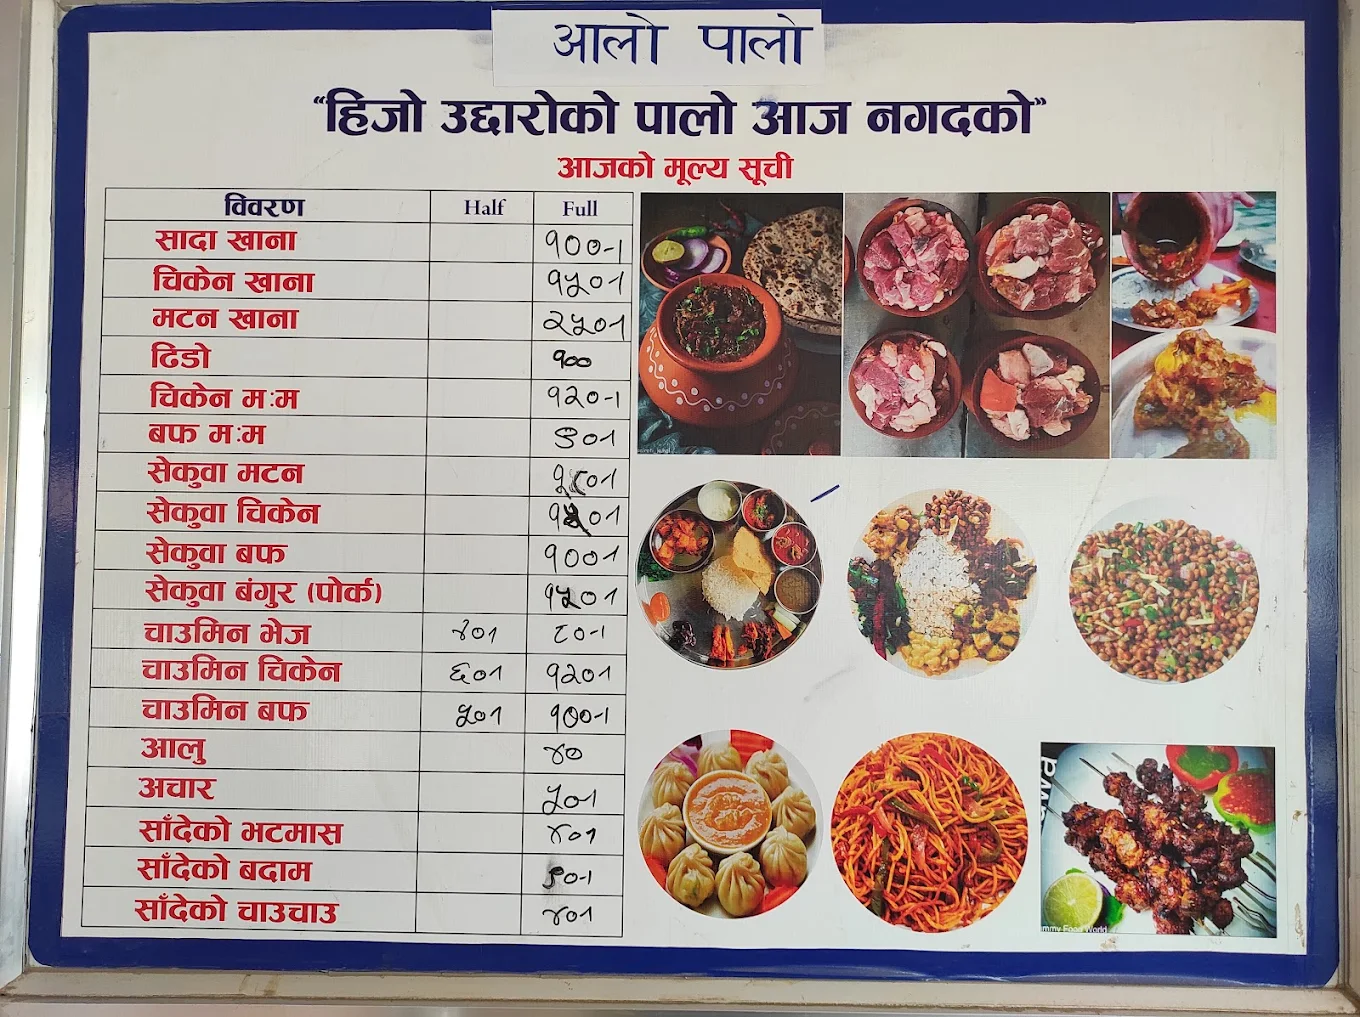 आलो पालो
“हिजो उद्दारोको पालो आज नगदको”
आजको मूल्य सूची
विवरण Half Full
सादा खाना १००-१
चिकेन खाना १५०-१
मटन खाना २५०१
ढिडो १००
चिकेन म:म १२०-१
बफ म:म ९०-१
सेकुवा मटन
सेकुवा चिकेन
सेकुवा बफ १००१
सेकुवा बंगुर (पोर्क) १५०१
चाउमिन भेज ४०१ ८०-१
चाउमिन चिकेन ६०१ १२०१
चाउमिन बफ ५०१ १००-१
आलु ४०
अचार ५०-१
साँदेको भटमास ४०१
साँदेको बदाम
साँदेको चाउचाउ ४०१